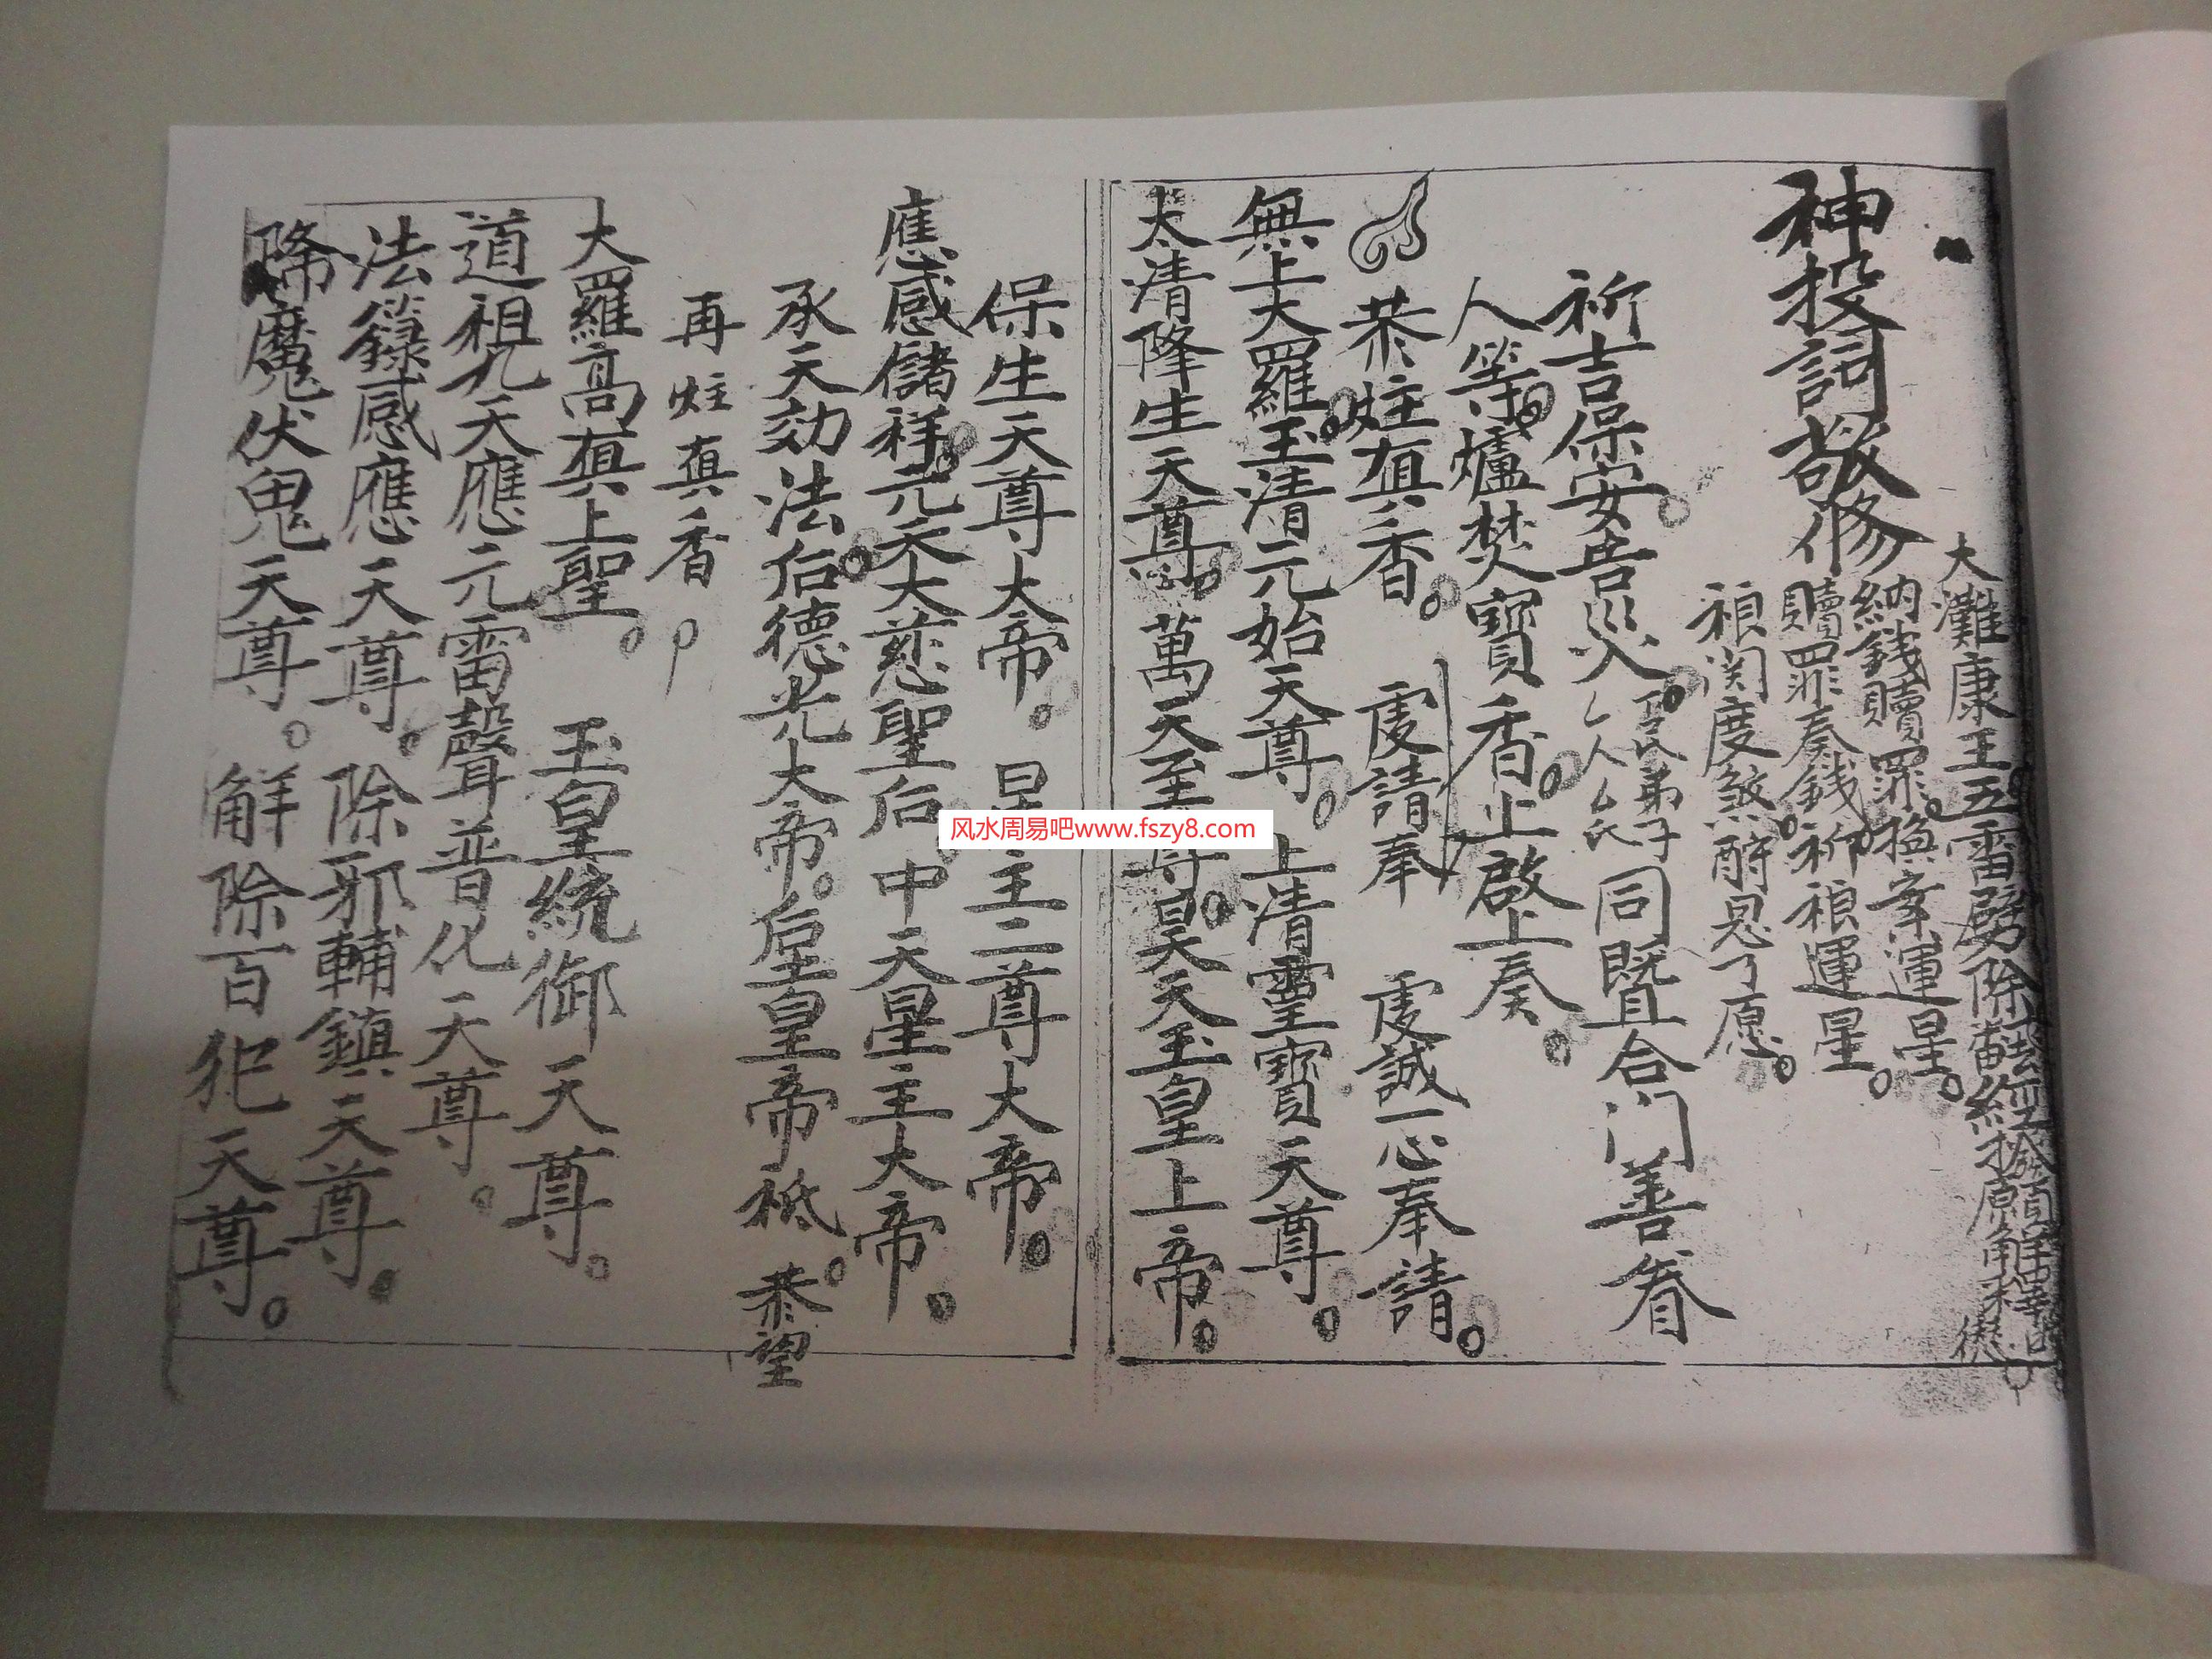 大灘康王五雷劈除
納錢贖罪。換案運星。
神投詞敬修
贖罪奏錢祈禄運星。
禄関度煞酧恩了愿。
祈吉保安告災。弟子同暨合门善眷
人等。爐焚寶香。上啟上奏。
恭炷真香。虔請奉 虔誠一心奉請。
無上大羅。玉清元始天尊。上清靈寶天尊。
太清降生天尊。萬天至尊。昊天玉皇上帝。
保生天尊大帝。星主二尊大帝。
應感儲祥。元天大慈聖后 中天星主大帝。
承天効法。后德光大帝。后皇皇帝祇。恭望
再炷真香
大羅高真上聖。玉皇統御天尊。
道祖九天應元雷聲普化天尊。
法籙感應天尊。除邪輔鎮天尊。
降魔伏鬼天尊。解除百犯天尊。
风水周易吧www.fszy8.com